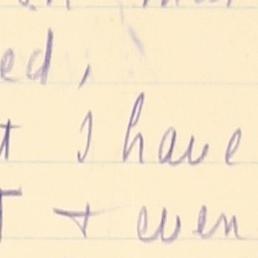 ed,
t I have
T + even